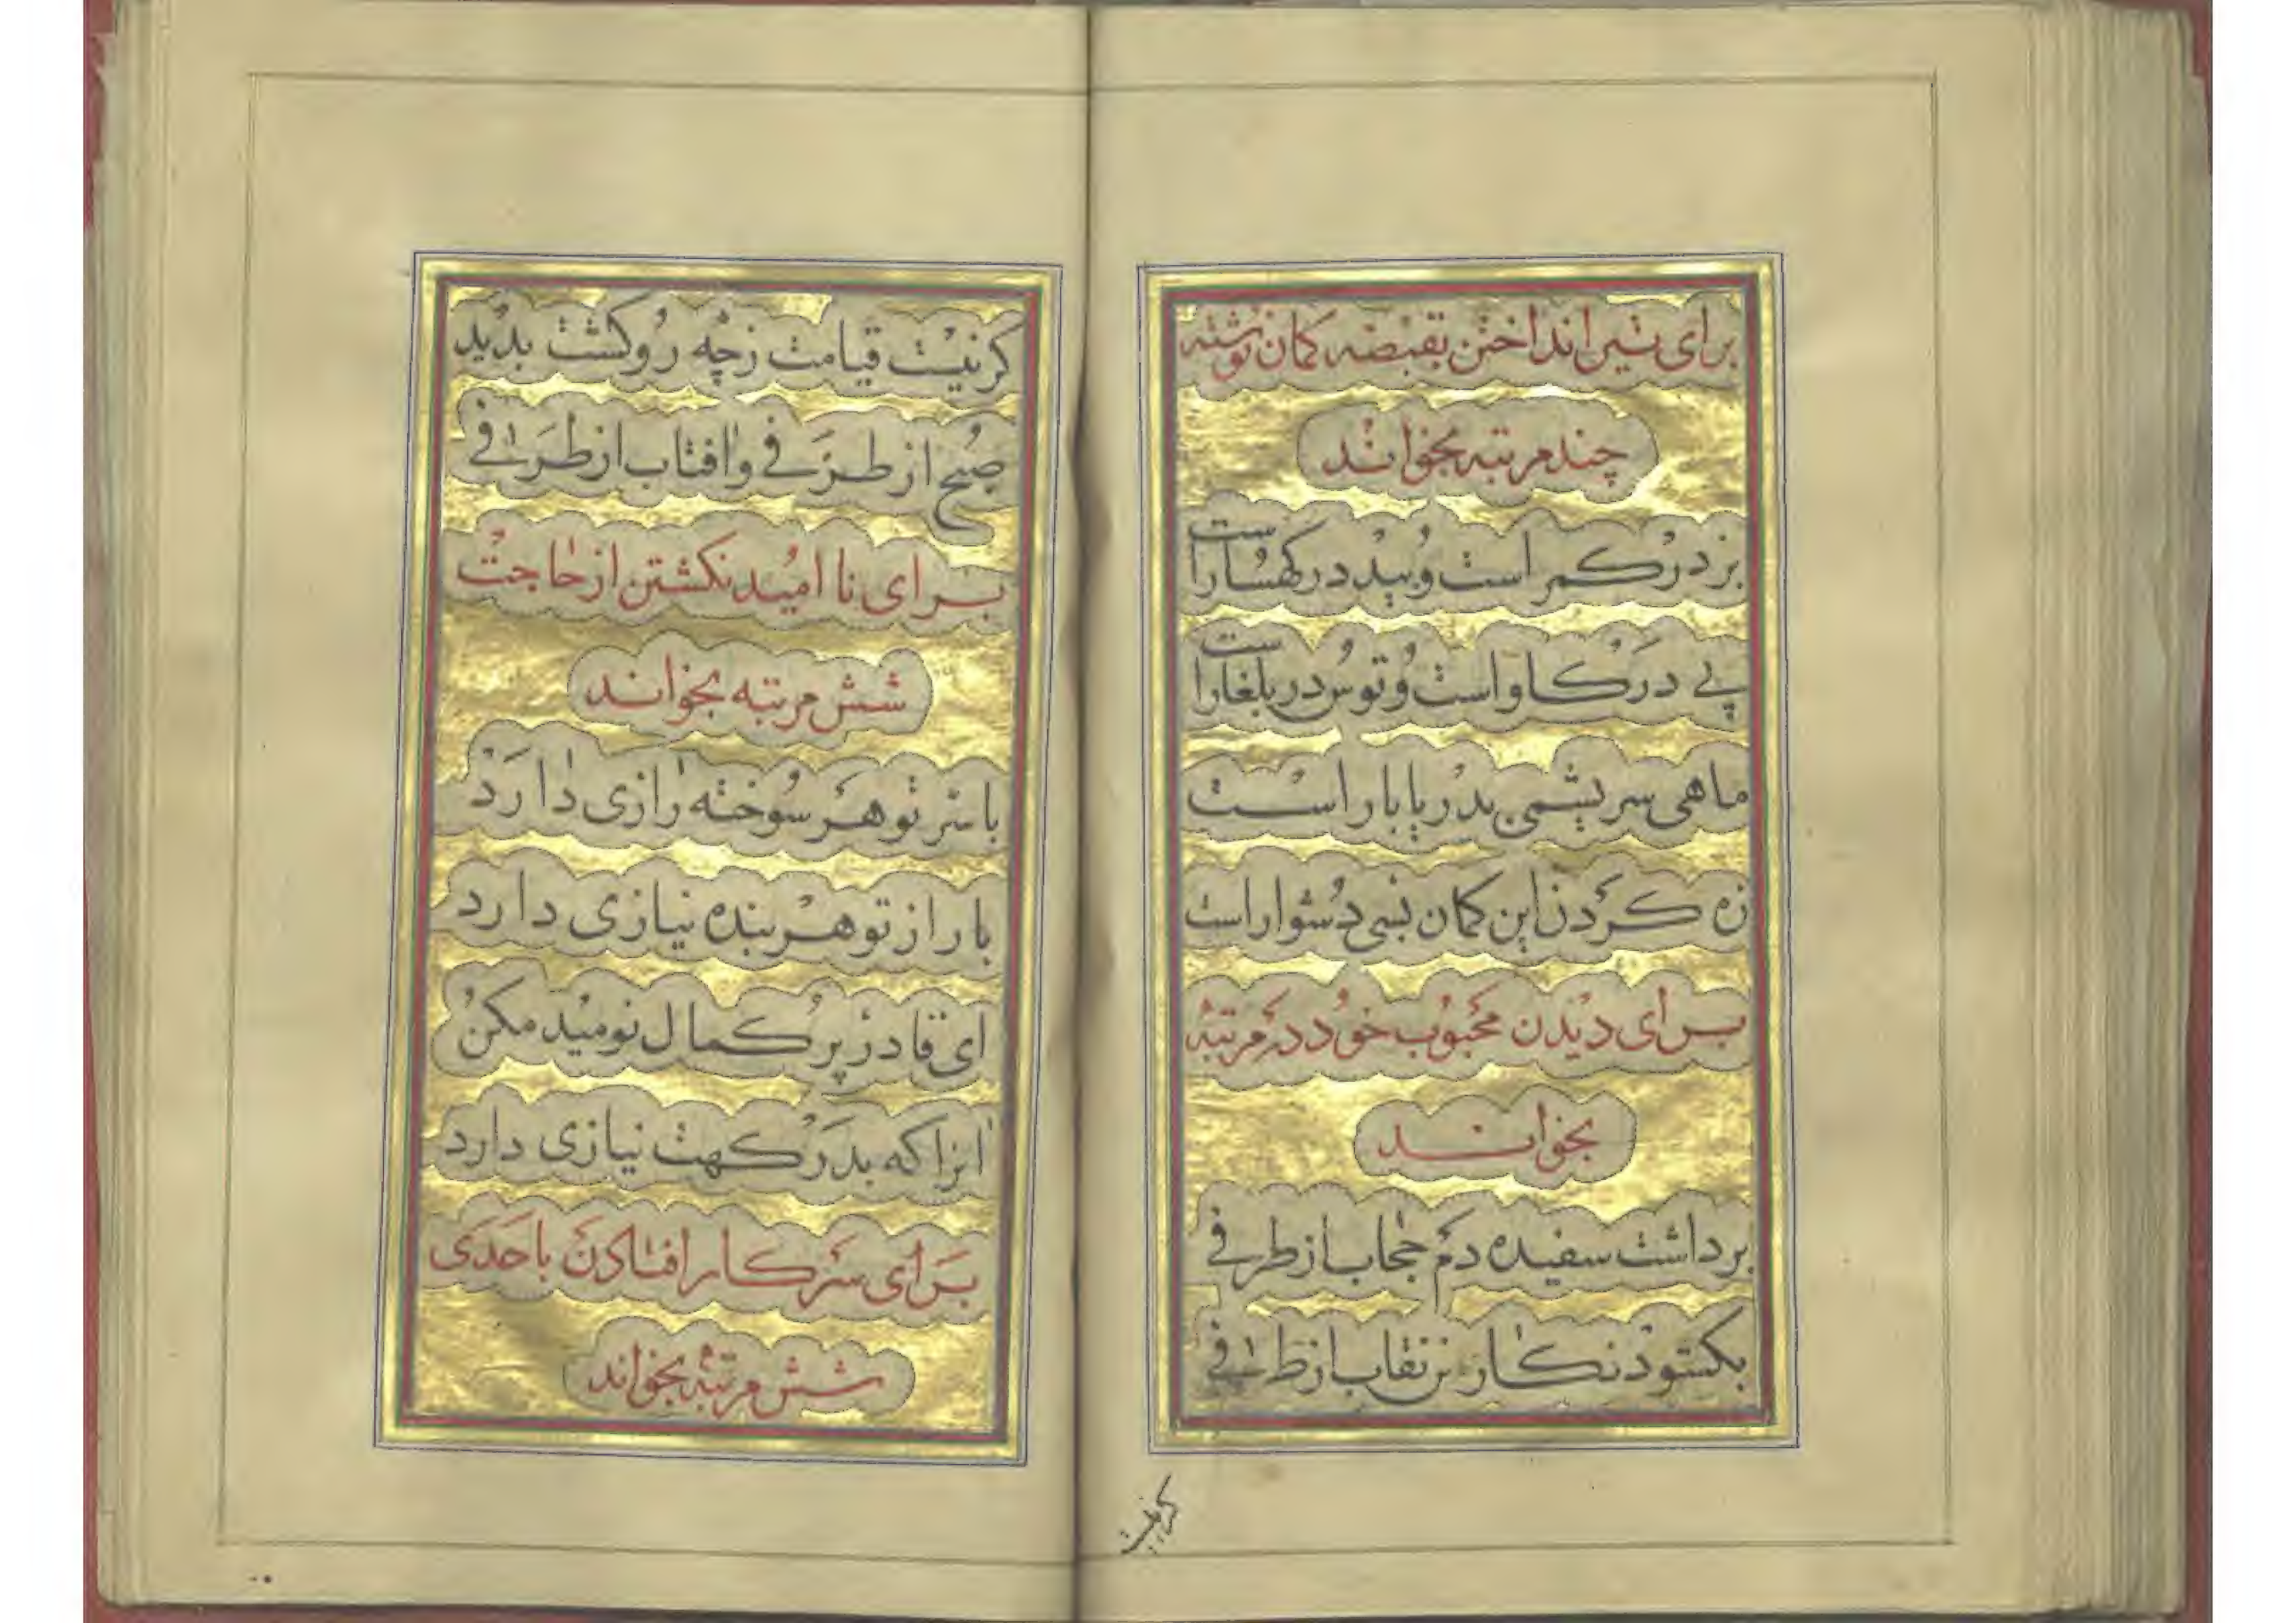 برای تیر انداختن بقبضه کمان نوشته
چند مرتبه بخواند
بز در کمر است و بید در کهسار است
پی در کاو است و توس در بلغار است
ماهی سریشمی بدریا بار است
زه کردن این کمان بسی دشوار است
برای دیدن محبوب خود در مرتبه
بخواند
برداشت سفیده دم حجاب از طرفی
بکشود نکار من نقاب از طرفی
کر نیست
کر نیست قیامت زچه رو کشت بدید
صبح از طرفی و افتاب از طرفی
برای نا امید نکشتن از حاجت
شش مرتبه بخواند
با سر تو هر سوخته رازی دارد
یا راز تو هر بنده نیازی دارد
ای قادر پر کمال نومید مکن
انرا که بدرکهت نیازی دارد
برای سر کار افتادن با حدی
شش مرتبه بخواند